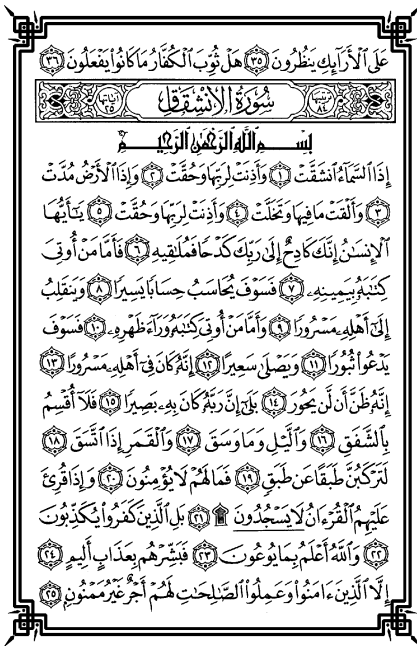 عَلَى ٱلْأَرَآئِكِ يَنظُرُونَ ٣٥ هَلْ ثُوِّبَ ٱلْكُفَّارُ مَا كَانُوا۟ يَفْعَلُونَ ٣٦
ترتيبها ٨٤ سُورَةُ الانشِقَاقِ آياتها ٢٥
بِسْمِ ٱللَّهِ ٱلرَّحْمَٰنِ ٱلرَّحِيمِ
إِذَا ٱلسَّمَآءُ ٱنشَقَّتْ ١ وَأَذِنَتْ لِرَبِّهَا وَحُقَّتْ ٢ وَإِذَا ٱلْأَرْضُ مُدَّتْ
٣ وَأَلْقَتْ مَا فِيهَا وَتَخَلَّتْ ٤ وَأَذِنَتْ لِرَبِّهَا وَحُقَّتْ ٥ يَٰٓأَيُّهَا
ٱلْإِنسَٰنُ إِنَّكَ كَادِحٌ إِلَىٰ رَبِّكَ كَدْحًا فَمُلَٰقِيهِ ٦ فَأَمَّا مَنْ أُوتِىَ
كِتَٰبَهُۥ بِيَمِينِهِۦ ٧ فَسَوْفَ يُحَاسَبُ حِسَابًا يَسِيرًا ٨ وَيَنقَلِبُ
إِلَىٰٓ أَهْلِهِۦ مَسْرُورًا ٩ وَأَمَّا مَنْ أُوتِىَ كِتَٰبَهُۥ وَرَآءَ ظَهْرِهِۦ ١٠ فَسَوْفَ
يَدْعُوا۟ ثُبُورًا ١١ وَيَصْلَىٰ سَعِيرًا ١٢ إِنَّهُۥ كَانَ فِىٓ أَهْلِهِۦ مَسْرُورًا ١٣
إِنَّهُۥ ظَنَّ أَن لَّن يَحُورَ ١٤ بَلَىٰٓ إِنَّ رَبَّهُۥ كَانَ بِهِۦ بَصِيرًا ١٥ فَلَآ أُقْسِمُ
بِٱلشَّفَقِ ١٦ وَٱلَّيْلِ وَمَا وَسَقَ ١٧ وَٱلْقَمَرِ إِذَا ٱتَّسَقَ ١٨
لَتَرْكَبُنَّ طَبَقًا عَن طَبَقٍ ١٩ فَمَا لَهُمْ لَا يُؤْمِنُونَ ٢٠ وَإِذَا قُرِئَ
عَلَيْهِمُ ٱلْقُرْءَانُ لَا يَسْجُدُونَ ۩ ٢١ بَلِ ٱلَّذِينَ كَفَرُوا۟ يُكَذِّبُونَ
٢٢ وَٱللَّهُ أَعْلَمُ بِمَا يُوعُونَ ٢٣ فَبَشِّرْهُم بِعَذَابٍ أَلِيمٍ ٢٤
إِلَّا ٱلَّذِينَ ءَامَنُوا۟ وَعَمِلُوا۟ ٱلصَّٰلِحَٰتِ لَهُمْ أَجْرٌ غَيْرُ مَمْنُونٍۭ ٢٥